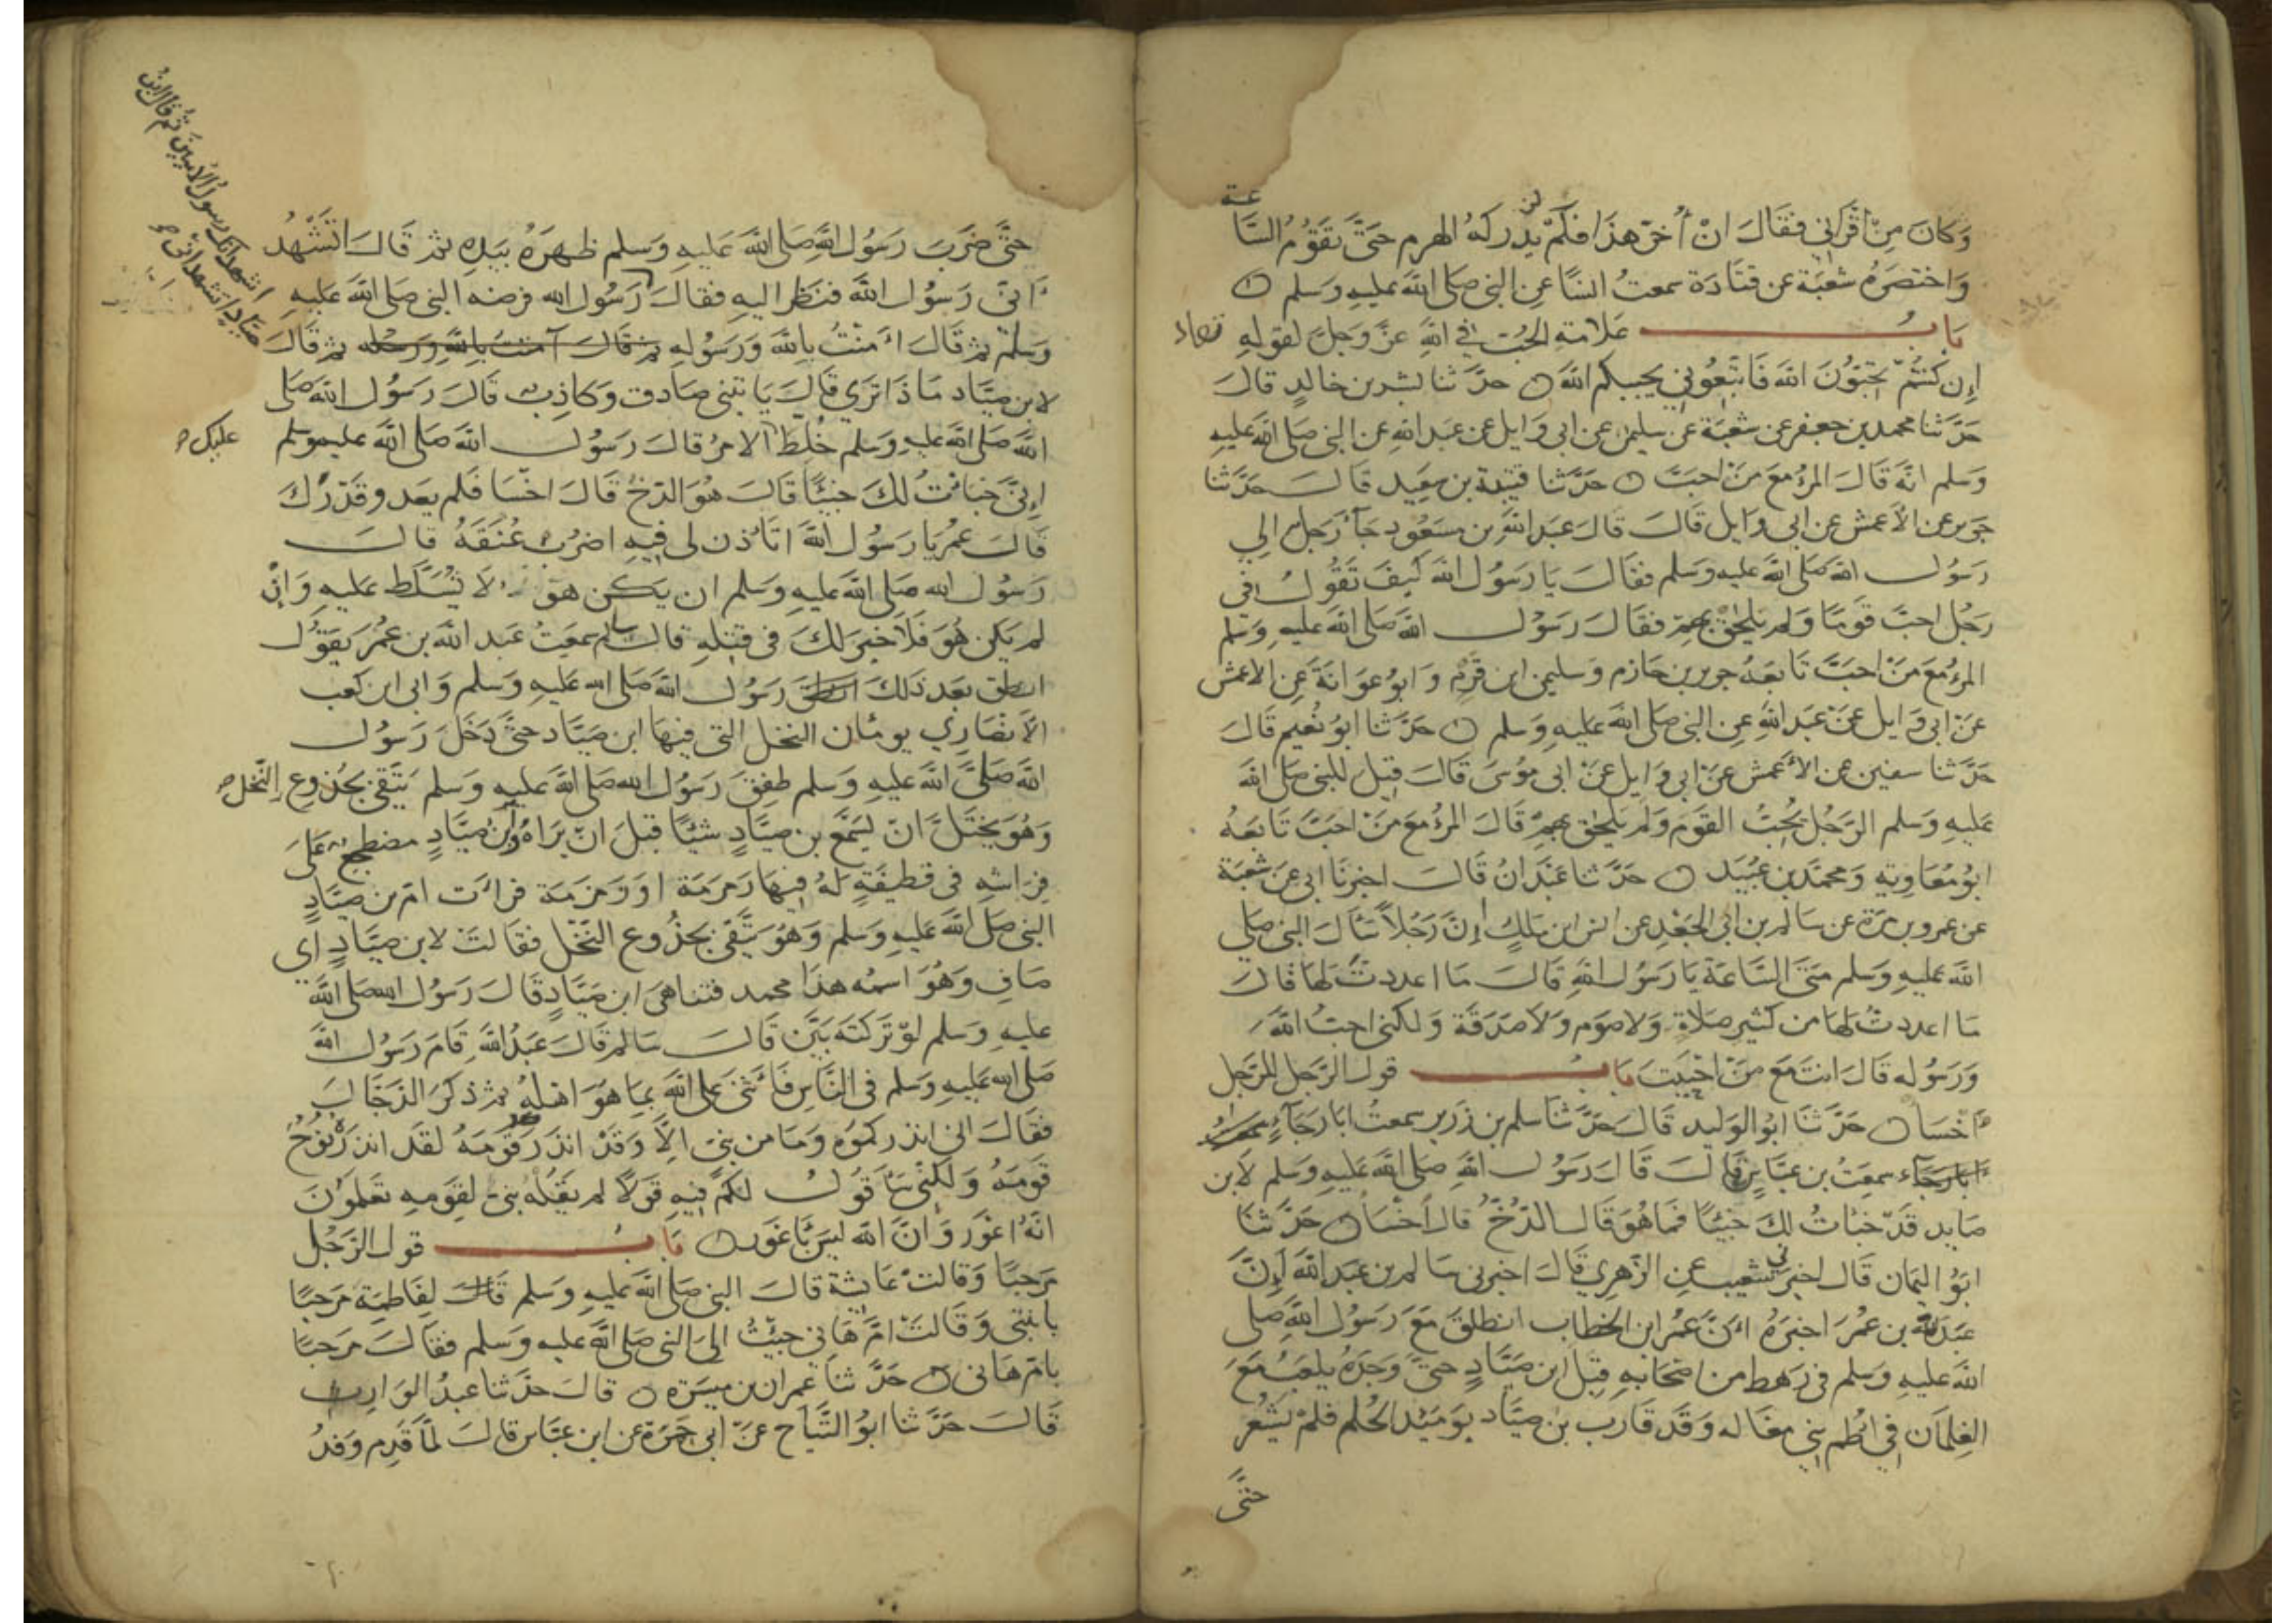 وَكَانَ مِنْ اَقْرَانِي فَقَالَ انْ أُخِّرَ هَذَا فَلَمْ يُدْرِكهُ الهرم حَتَّى تَقُوْمُ السَّا
عة
لن
وَاختصَرَهُ شعبَة عن قتَادَة سمعتُ انسًا عن النبي صَلى الله عليهِ وَسَلم
بَابُ علَامَةِ الحُبّ في اللهِ عَزَّ وَجَلّ لقولهِ تعالى
إِن كُنتُمْ تحبّوْنَ الله فَاتَّبِعُوْنِي يحببكم اللهُ حدّثنا بشر بن خالدٍ قالَ
حَدَّثنا محمد بن جعفر عن شعبَة عن سليمن عن ابي وَايل عن عبد اللهِ عن النبي صَلى الله عليهِ
وَسَلم انّه قَالَ المرْءُ مَعَ مَنْ احبَّ حَدَّثنا قتيبة بن سعِيد قَالَ حَدَّثنا
جرير عن الاَعمش عن ابي وَايل قَالَ قالَ عَبد اللهِ بن مسَعُود جَآءَ رَجل الي
رَسُول الله صَلى الله عليه وَسَلم فقالَ يَا رَسُول الله كيفَ تَقُوْلُ في
رَجُل احبَّ قَومًا وَلم يَلحَقْ بهِمْ فقالَ رَسُوْل الله صَلى الله عليهِ وَسَلم
المرْءُ مَعَ مَنْ احبَّ تَابَعَهُ جرير بن حَازم وَسليمن ابن قَرْم وَابوُ عوَانَةَ عَن الاعمش
عَنْ ابي وَايل عَنْ عَبد اللهِ عن النبي صَلى الله عليهِ وَسَلم حَدَّثنا ابوُ نُعَيم قَالَ
حَدَّثنا سفين عن الاَعمش عَنْ ابي وَايل عَنْ ابي مُوْسَى قَالَ قِيْل للنبي صَلى الله
عَليهِ وَسَلم الرَّجُلُ يُحِبُّ القَوم وَلَم يَلحَق بهِمْ قَالَ المرْءُ مَعَ مَنْ احَبَّ تَابعَهُ
ابوُ مُعَاويَة وَمحمَّد بن عُبَيد حَدَّثنا عَبْدَانُ قَالَ اخبرنَا ابي عَنْ شعبَة
عن عمرو بن مرّة عن سَالم بن ابي الجَعْدِ عن انس ابن مَالِكٍ انَّ رَجُلاً سَأَلَ النبي صَلى
الله عليهِ وَسَلم مَتَى السَّاعَة يَا رَسُول اللهِ قَالَ مَا اعددتَ لهَا قَالَ
مَا اعددتُ لهَا من كثير صَلاةٍ وَلا صَوْم وَلا صَدَقَة وَلكني احبُّ الله
وَرَسُوله قَالَ انتَ مَعَ مَنْ احْبَبتَ بَابُ قول الرّجَل للرّجَل
اخسَأ حَدَّثنَا ابوُ الوَليد قَالَ حَدَّثنَا سلم بن زَرير سمعتُ ابَا رَجَآءٍ سمعت
ابَا رجَآء سمعتُ بن عبَّاسٍ قَالَ قَالَ رَسُوْل اللهِ صَلى الله عليهِ وَسَلم لابن
صَايد قَدْ خَبَأتُ لكَ خَبِيْئًا فمَا هُوَ قَالَ الدّخّ قالَ اخْسَأ حَدَّثنا
ابوُ اليمَان قَالَ اخبرني شعيب عن الزّهري قَالَ اخبرني سَالم بن عبد الله انّ
عَبد الله بن عُمَرَ اخبرَهُ انّ عُمر ابن الخطاب انطلقَ مَعَ رَسُول اللهِ صلى
الله عليهِ وَسَلم في رَهط من اصْحَابهِ قِبَلَ ابن صَيَّادٍ حَتَّى وَجَدَهُ يلعَبُ مَعَ
الغِلمَان في اطُم بني مغَاله وَقَد قَارَب بن صيَّاد يوَمئِذ الحُلم فلمْ يَشعُر
حتَّى
حتَّى ضَرَبَ رَسُوُل اللهِ صَلى الله عَليهِ وَسَلم ظهرَهُ بيَدهِ ثم قَالَ اتَشْهَدُ
انّي رَسُوْل الله فنظر اليهِ فقالَ رَسُوْل الله فرضه النبي صَلى الله عليهِ
اشهد انك رسوُل الاميين ثم قال ابنُ
صيّاد اتشهد اني
وَسَلم ثم قَالَ امَنْتُ بالله وَرَسُولهِ ثم قَالَ آمنتُ باللهِ وَرسله ثم قَالَ
لابن صَيَّاد مَاذَا تَرَى قَالَ يَاتيني صَادق وَكاذِب قَالَ رَسُول الله صَلى
الله صَلى الله عليهِ وَسَلم خُلِطَ الامرُ قَالَ رَسُوْل الله صَلى الله عليه وَسلم
عليك
اِنِّي خَبَأتُ لكَ خَبيْئًا قَالَ هُوَ الدّخُ قَالَ اخْسَا فَلم يعَد وقَدْرَكَ
قَالَ عمرُ يا رَسُول الله اتَاذن لى فيهِ اضرُبُ عُنُقَهُ قالَ
رَسُوْل الله صَلى الله عليهِ وَسَلم ان يَكُن هوَ لاَ تُسَلّط عليهِ وَانْ
لم يكن هُوَ فَلَا خيرَ لكَ في قتلهِ قالَ سَالم سمعتُ عَبد الله بن عمُر يَقوُل
انطلق بعدَ ذلكَ انطلق رَسُوْل الله صَلى الله عليهِ وَسَلم وَابي ابن كعب
الاَنصَاري يومَّان النخل التي فيهَا ابن صَيَّاد حتَّى دَخَلَ رَسُوْل
الله صَلىَّ الله عليهِ وَسَلم طفِقَ رَسُوْل الله صَلى الله عليه وَسَلم يَتَّقي بجُذوع النَّخل
وَهُوَ يَختلُ انْ يَسْمَعَ بن صيَّادٍ شيْئًا قبلَ انْ يرَاهُ وَابنُ صيَّادٍ مضطجع عَلَى
فِرَاشهِ في قَطيفَةٍ لَهُ فيهَا رَمرَمَة اوَ زَمزَمَة فرات امّ بن صيّادٍ
النبي صَلى الله عليهِ وَسَلم وَهُوَ يَتَّقي بجُذُوع النَّخْل فقَالتْ لابن صيَّادٍ اي
صَافِ وَهُوَ اسمُه هذَا محمد فتناهَى ابن صَيَّادٍ قَالَ رَسُوُل الله صَلى الله
عليهِ وَسَلم لوْ تَركتَه بَيَّن قَالَ سَالم قَالَ عَبدُ الله قَامَ رَسُوْل الله
صَلى الله عَليهِ وَسَلم في النَّاس فَاثنى عَلى الله بمَا هُوَ اهلهُ ثم ذكرَ الدّجَالَ
فقَالَ اني انذركموُه وَمَا من نبي الاَّ وَقَدْ انذرَ قَومَهُ لقَد انذرَهُ نُوْحُ
قومَهُ وَلكنّي سَاقوُل لكمْ فيهِ قولاً لم يَقُلهُ نبيّ لقِوَمهِ تعَلموُنَ
انّهُ اعْوَر وَانَّ الله ليسَ بَاعْوَر بَابُ قول الرّجُل
مَرحبًا وَقَالت عَايشة قالَ النبي صَلى الله عليهِ وَسَلم قَالَ لفَاطِمَة مَرحَبًا
بابنتي وَقَالتْ امّ هَاني جئتُ الى النبي صَلى الله عليه وسلم فقَالَ مَرحبًا
بامّ هَاني حَدَّثنا عمران بن ميسَرَة قالَ حدّثنا عبدُ الوَارث
قَالَ حَدَّثنا ابوُ التَّيَّاح عَنْ ابي جَمرَة عن ابن عبَّاس قَالَ لمّا قَدِمَ وَفدُ